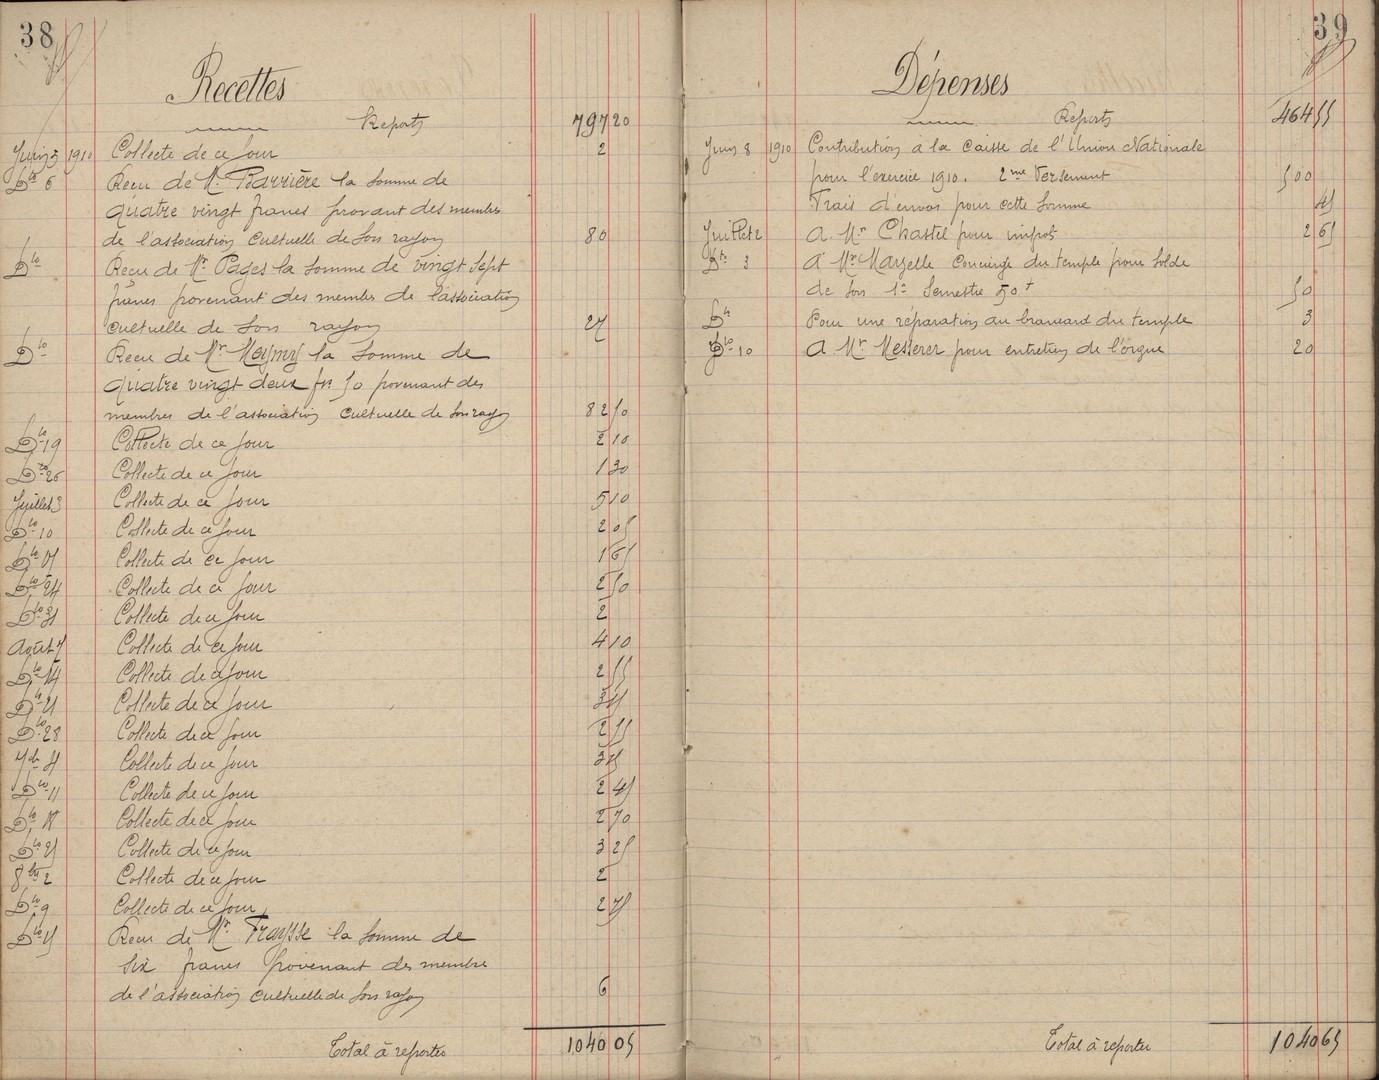 38
Recettes
Reports 797 20
Juin 5 1910 Collecte de ce Jour 2
Dto 6 Recu de M. Barrière la somme de
quatre vingt francs provant des membres
de l'association cultuelle de son rayon 80
Dto Reçu de Mr Pages la somme de vingt sept
francs provenant des membres de l'association
cultuelle de son rayon 27
Dto Recu de Mr la somme de
quatre vingt deux frs 50 provenant des
membres de l'association cultuelle de son rayon 82 50
Dto 19 Collecte de ce Jour 2 10
Dto 26 Collecte de ce Jour 1 30
Juillet 3 Collecte de ce Jour 5 10
Dto 10 Collecte de ce Jour 2 05
Dto 17 Collecte de ce Jour 1 65
Dto 24 Collecte de ce Jour 2 50
Dto 31 Collecte de ce Jour 2
Août 7 Collecte de ce Jour 4 10
Dto 14 Collecte de ce Jour 2 55
Dto 21 Collecte de ce Jour 3 45
Dto 28 Collecte de ce Jour 2 55
7bre 4 Collecte de ce Jour 3 45
Dto 11 Collecte de ce Jour 2 45
Dto 18 Collecte de ce Jour 2 70
Dto 25 Collecte de ce Jour 3 25
8bre 2 Collecte de ce Jour 2
Dto 9 Collecte de ce Jour 2 75
Dto 15 Recu de Mr Fraysse la somme de
Six francs provenant des membre
de l'association cultuelle de son rayon 6
Total à reporter 1040 05
39
Dépenses
Reports 464 55
Juin 8 1910 Contribution a la Caisse de l'Union Nationale
pour l'exercice 1910. 2me Versement 500
Frais d'envoi pour cette somme 45
Juillet 2 a Mr Chastel pour impots 2 65
Dto 3 a Mr Mazelle Concierge du temple pour Solde
de son 1er Semestre 50f 50
Dto Pour une réparation au brancard du temple 3
Dto 10 a Mr Messerer pour entretien de l'orgue 20
Total à reporter 1040 65